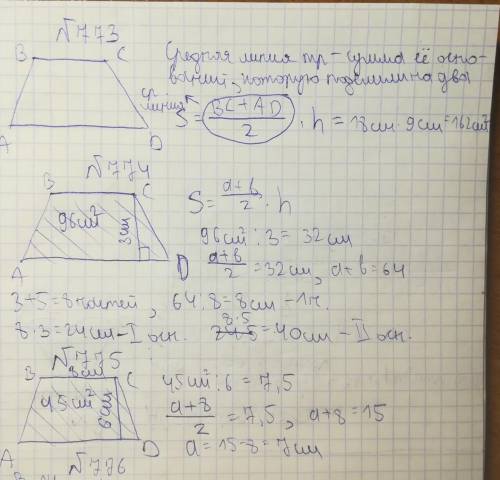 №773
B C
Средняя линия тр – сумма её осно-
ваний, которую поделили на два
ср.
линия
A D
S = (BC+AD)/2 · h = 18см · 9см = 162см²
№774
B C
96см² 3см
A D
S = (a+b)/2 · h
96см² : 3 = 32см
(a+b)/2 = 32см, a+b = 64
3+5=8 частей, 64:8=8см – 1ч.
8·3=24см – I осн. 8·5 = 40см – II осн.
№775
8см
B C
45см² 6см
A D
45см² : 6 = 7,5
(a+8)/2 = 7,5, a+8 = 15
a = 15-8 = 7см
№776